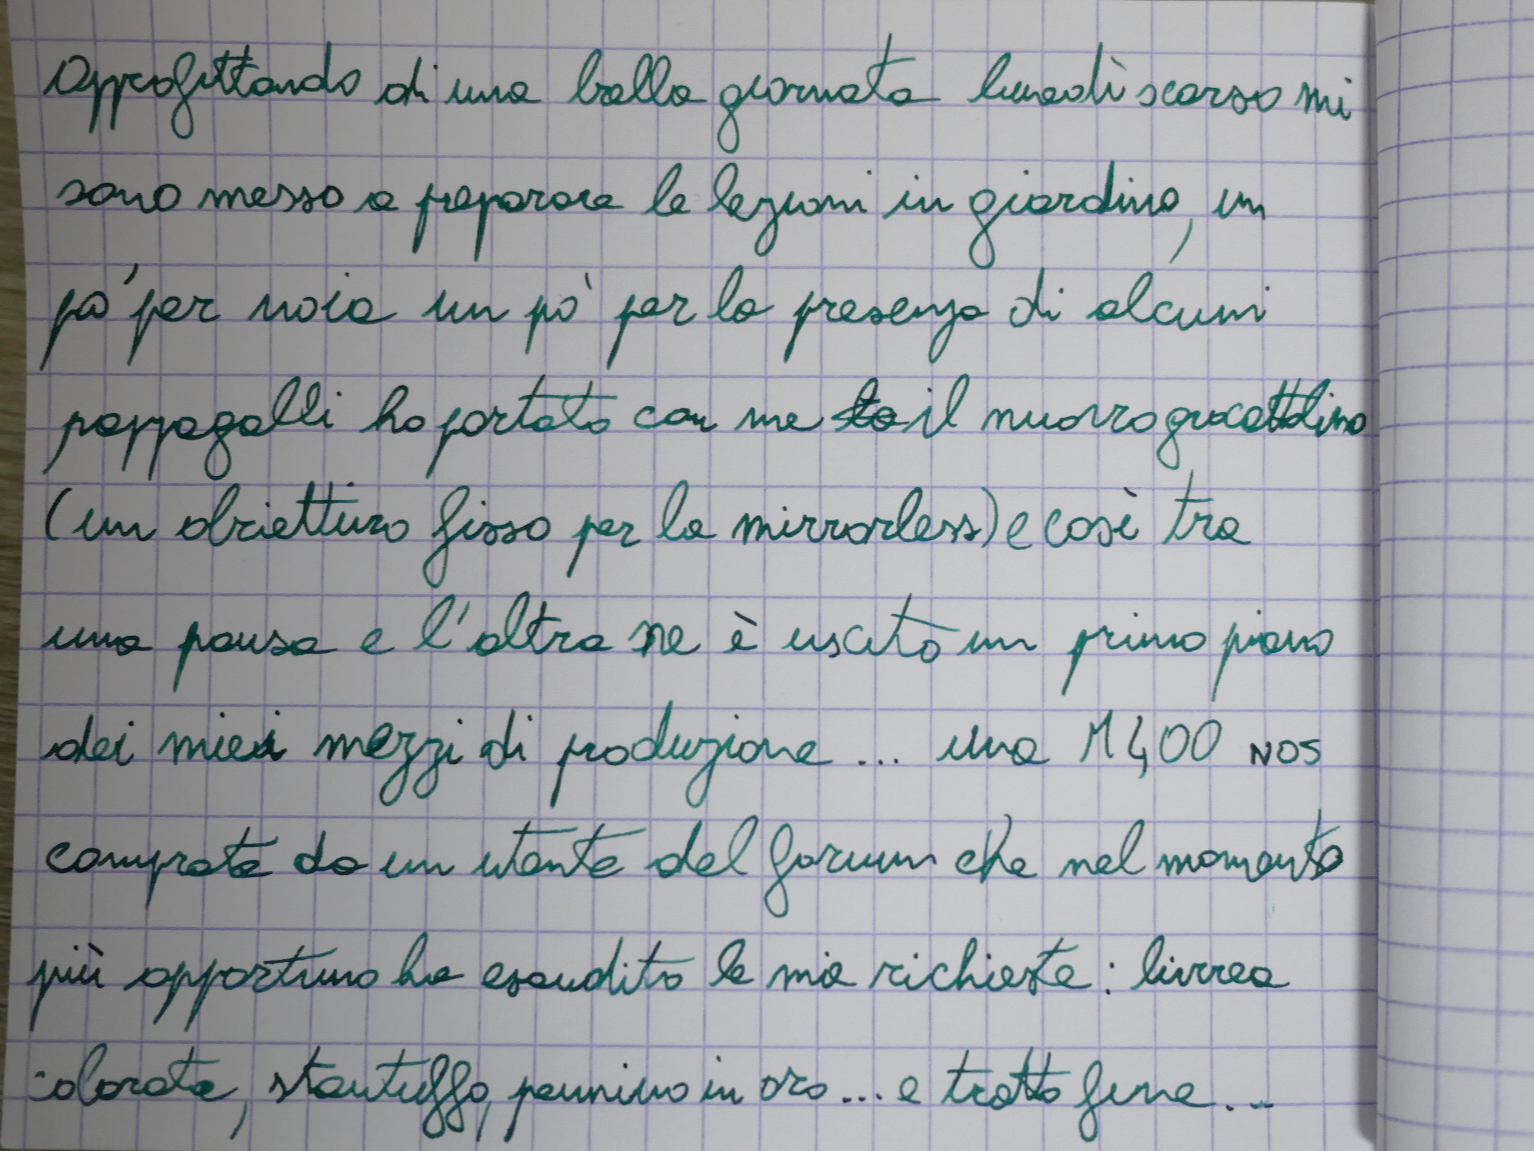 Approfittando di una bella giornata lunedì scorso mi
sono messo a preparare le lezioni in giardino, un
pò per noia un pò per la presenza di alcuni
pappagalli ho portato con me il nuovo giocattolino
(un obiettivo fisso per la mirrorless) e così tra
una pausa e l'altra ne è uscito un primo piano
dei miei mezzi di produzione... una M400 NOS
comprata da un utente del forum che nel momento
più opportuno ha esaudito le mie richieste: livrea
colorata, stantuffo, pennino in oro... e tratto fine...